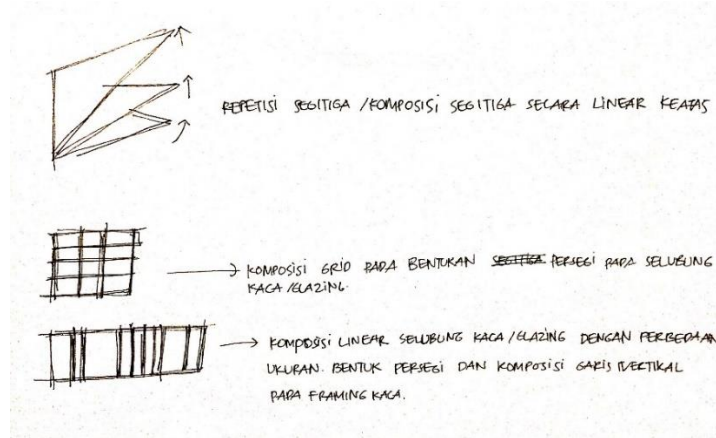 REPETISI SEGITIGA / KOMPOSISI SEGITIGA SECARA LINEAR KEATAS
KOMPOSISI GRID PADA BENTUKAN SEGITIGA PERSEGI PADA SELUBUNG
KACA/GLAZING.
KOMPOSISI LINEAR SELUBUNG KACA/GLAZING DENGAN PERBEDAAN
UKURAN. BENTUK PERSEGI DAN KOMPOSISI GARIS VERTIKAL
PADA FRAMING KACA.